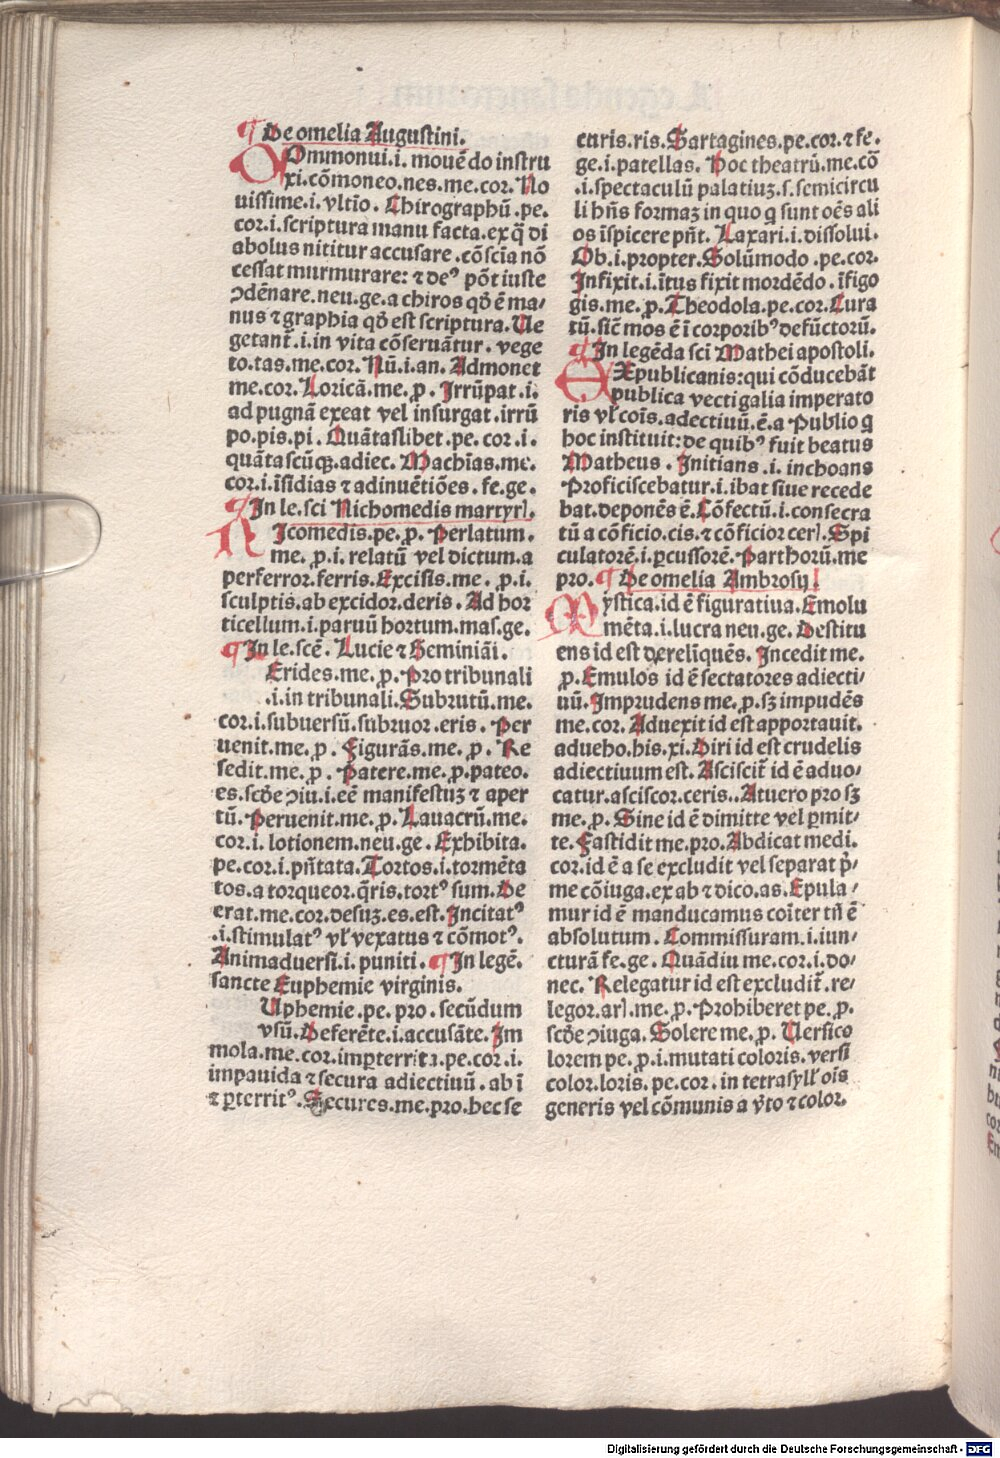 ¶ De omelia Augustini.
COmmonui.i. mouēdo instru
xi.cōmoneo.nes.me.cor. No
uissime.i. vltio. Chirographū.pe.
cor.i.scriptura manu facta.ex q̄ di
abolus nititur accusare. cōscīa nō
cessat murmurare: ⁊ deꝰ pōt iuste
ↄdēnare.neu.ge.a chiros qd̕ ē ma⸗
nus ⁊ graphia qd̕ est scriptura. Ue
getant̄.i. in vita cōseruāt̄ur. vege
to.tas.me.cor. Nū.i.an. Admonet
me.cor. Loricā.me.p̲. Irrūpat.i.
ad pugnā exeat vel insurgat.irrū
po.pis.pi. Quātaslibet.pe.cor.i.
quātascūqꝫ.adiec. Machīas.me.
cor.i.īsidias ⁊ adinuētiōes.fe.ge.
¶ In le.sci Nichomedis martyrꝭ.
NIcomedis.pe.p̲. Perlatum.
me.p̲.i. relatū vel dictum.a
perferror.ferris. Excisis.me.p̲.i.
sculptis.ab excidor.deris. Ad hor
ticellum.i.paruū hortum.mas.ge.
¶ In le.scē. Lucie ⁊ Geminiāi.
Erides.me.p̲. Pro tribunali
.i.in tribunali. Subrutū.me.
cor.i.subuersū.subruor.eris. Per
uenit.me.p̲. Figurās.me.p̲. Re
sedit.me.p̲. Patere.me.p̲.pateo.
es.scd̕e ↄiu.i.eē manifestuꝫ ⁊ aper
tū. Peruenit.me.p̲. Lauacrū.me.
cor.i.lotionem.neu.ge. Exhibita.
pe.cor.i.pn̄tata. Tortos.i.tormēta
tos.a torqueor.q̄ris.tortꝰ sum. De
erat.me.cor.desuꝫ.es.est. Incitatꝰ
.i.stimulatꝰ vl̕ vexatus ⁊ cōmotꝰ.
Animaduersi.i. puniti. ¶ In legē.
sancte Euphemie virginis.
Uphemie.pe.pro.secūdum
vsū. Deferēte.i.accusāte. Im
mola.me.cor.imp̲territa.pe.cor.i.
impauida ⁊ secura adiectiuū.ab ī
⁊ p̲territꝰ. Secures.me.pro.hec se
curis.ris. Sartagines.pe.cor.⁊ fe.
ge.i.patellas. Hoc theatrū.me.cō
.i.spectaculū palatiuꝫ.s.semicircu
li hn̄s formaꝫ in quo q sunt oēs ali
os īspicere pn̄t. Laxari.i.dissolui.
Ob.i.propter. Solūmodo.pe.cor.
Infixit.i.ītus fixit mordēdo.īfigo
gis.me.p̲. Theodola.pe.cor. Cura
tū.sic̄ mos ē ī corporibꝰ defūctorū.
¶ In legēda sci Mathei apostoli.
EXpublicanis:qui cōducebāt
publica vectigalia imperato
ris vl̕ cōis.adectiuū.ē.a Publio q
hoc instituit:de quibꝰ fuit beatus
Matheus. Initians.i. inchoans
Proficiscebatur.i.ibat siue recede
bat.deponēs ē. Cōfectū.i.consecra
tū a cōficio.cis.⁊ cōficior cerꝭ. Spi
culatorē.i.p̲cussorē. Parthorū.me
pro. ¶ De omelia Ambrosij.
MYstica.id ē figuratiua. Emolu
mēta.i.lucra neu.ge. Destitu
ens id est dereliquēs. Incedit me.
p̲. Emulos id ē sectatores adiecti⸗
uū. Imprudens me.p̲.sꝫ impudēs
me.cor. Aduexit id est apportauit.
adueho.his.xi. Diri id est crudelis
adiectiuum est. Asciscit̄ id ē aduo⸗
catur.asciscor.ceris.. At uero pro sꝫ
me.p̲. Sine id ē dimitte vel p̲mit⸗
te. Fastidit me.pro. Abdicat medi.
cor.id ē a se excludit vel separat p̄⸗
me cōiuga.ex ab ⁊ dico.as. Epula⸗
mur id ē manducamus coīter tn̄ ē
absolutum. Commissuram.i.iun⸗
cturā fe.ge. Quādiu me.cor.i.do⸗
nec. Relegatur id est excludit̄.re⸗
legor.arꝭ.me.p̲. Prohiberet pe.p̲.
scd̕e ↄiuga. Solere me.p̲. Uersico
lorem pe.p̲.i.mutati coloris.versi
color.loris.pe.cor. in tetrasyll̕ oīs
generis vel cōmunis a v̕to ⁊ color.
Digitalisierung gefördert durch die Deutsche Forschungsgemeinschaft - DFG